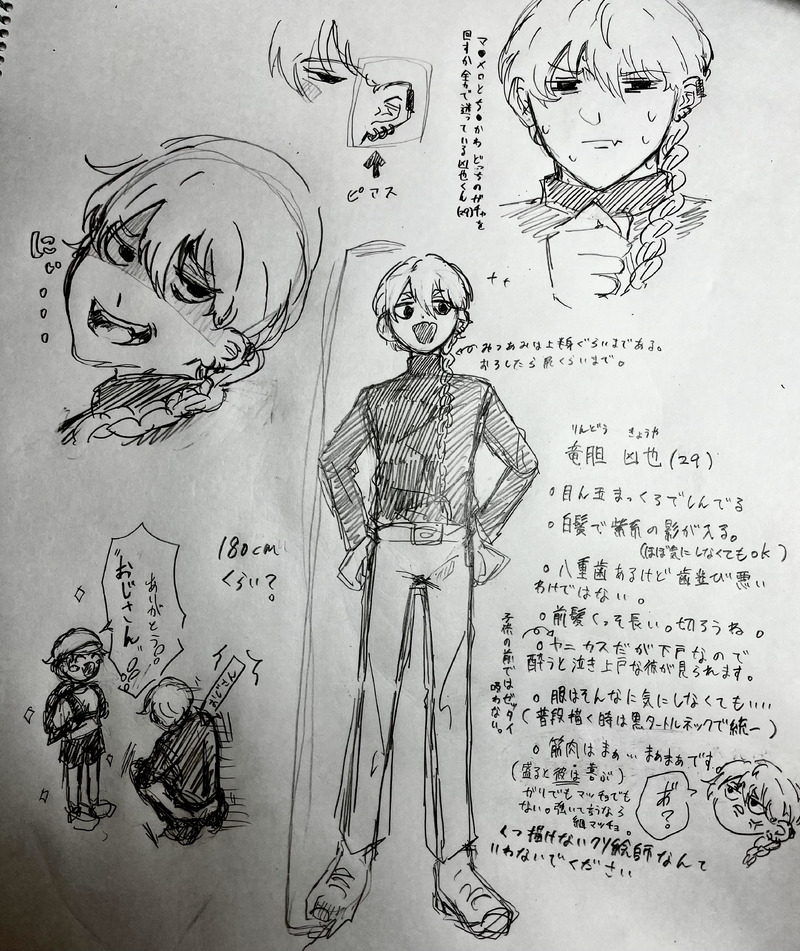 マ●メロとち●かわどっちのガチャを
回すか全力で迷っている凶也くん(29)
ピアス
にぃ…
みつあみは上半身ぐらいまである。
おろしたら尻くらいまで。
りんどう きょうや
竜胆 凶也(29)
○目ん玉まっくろでしんでる
○白髪で紫系の影が入る。
(ほぼ気にしなくてもOK)
○八重歯あるけど歯並び悪い
わけではない。
○前髪くっそ長い。切ろうね。
○ヤニカスだが下戸なので
酔うと泣き上戸な彼が見られます。
子供の前ではゼッタイ
吸わない。
○服はそんなに気にしなくてもいい
(普段描く時は黒タートルネックで統一)
○筋肉はまぁ…まぁまぁです。
(盛ると彼は喜ぶ)
がりでもマッチョでも
ない。強いて言うなら
細マッチョ。
くつ描けないクソ絵師なんて
いわないでください
あ゛?
180cm
くらい?
ありがとう!
"おじさん"
おじさん